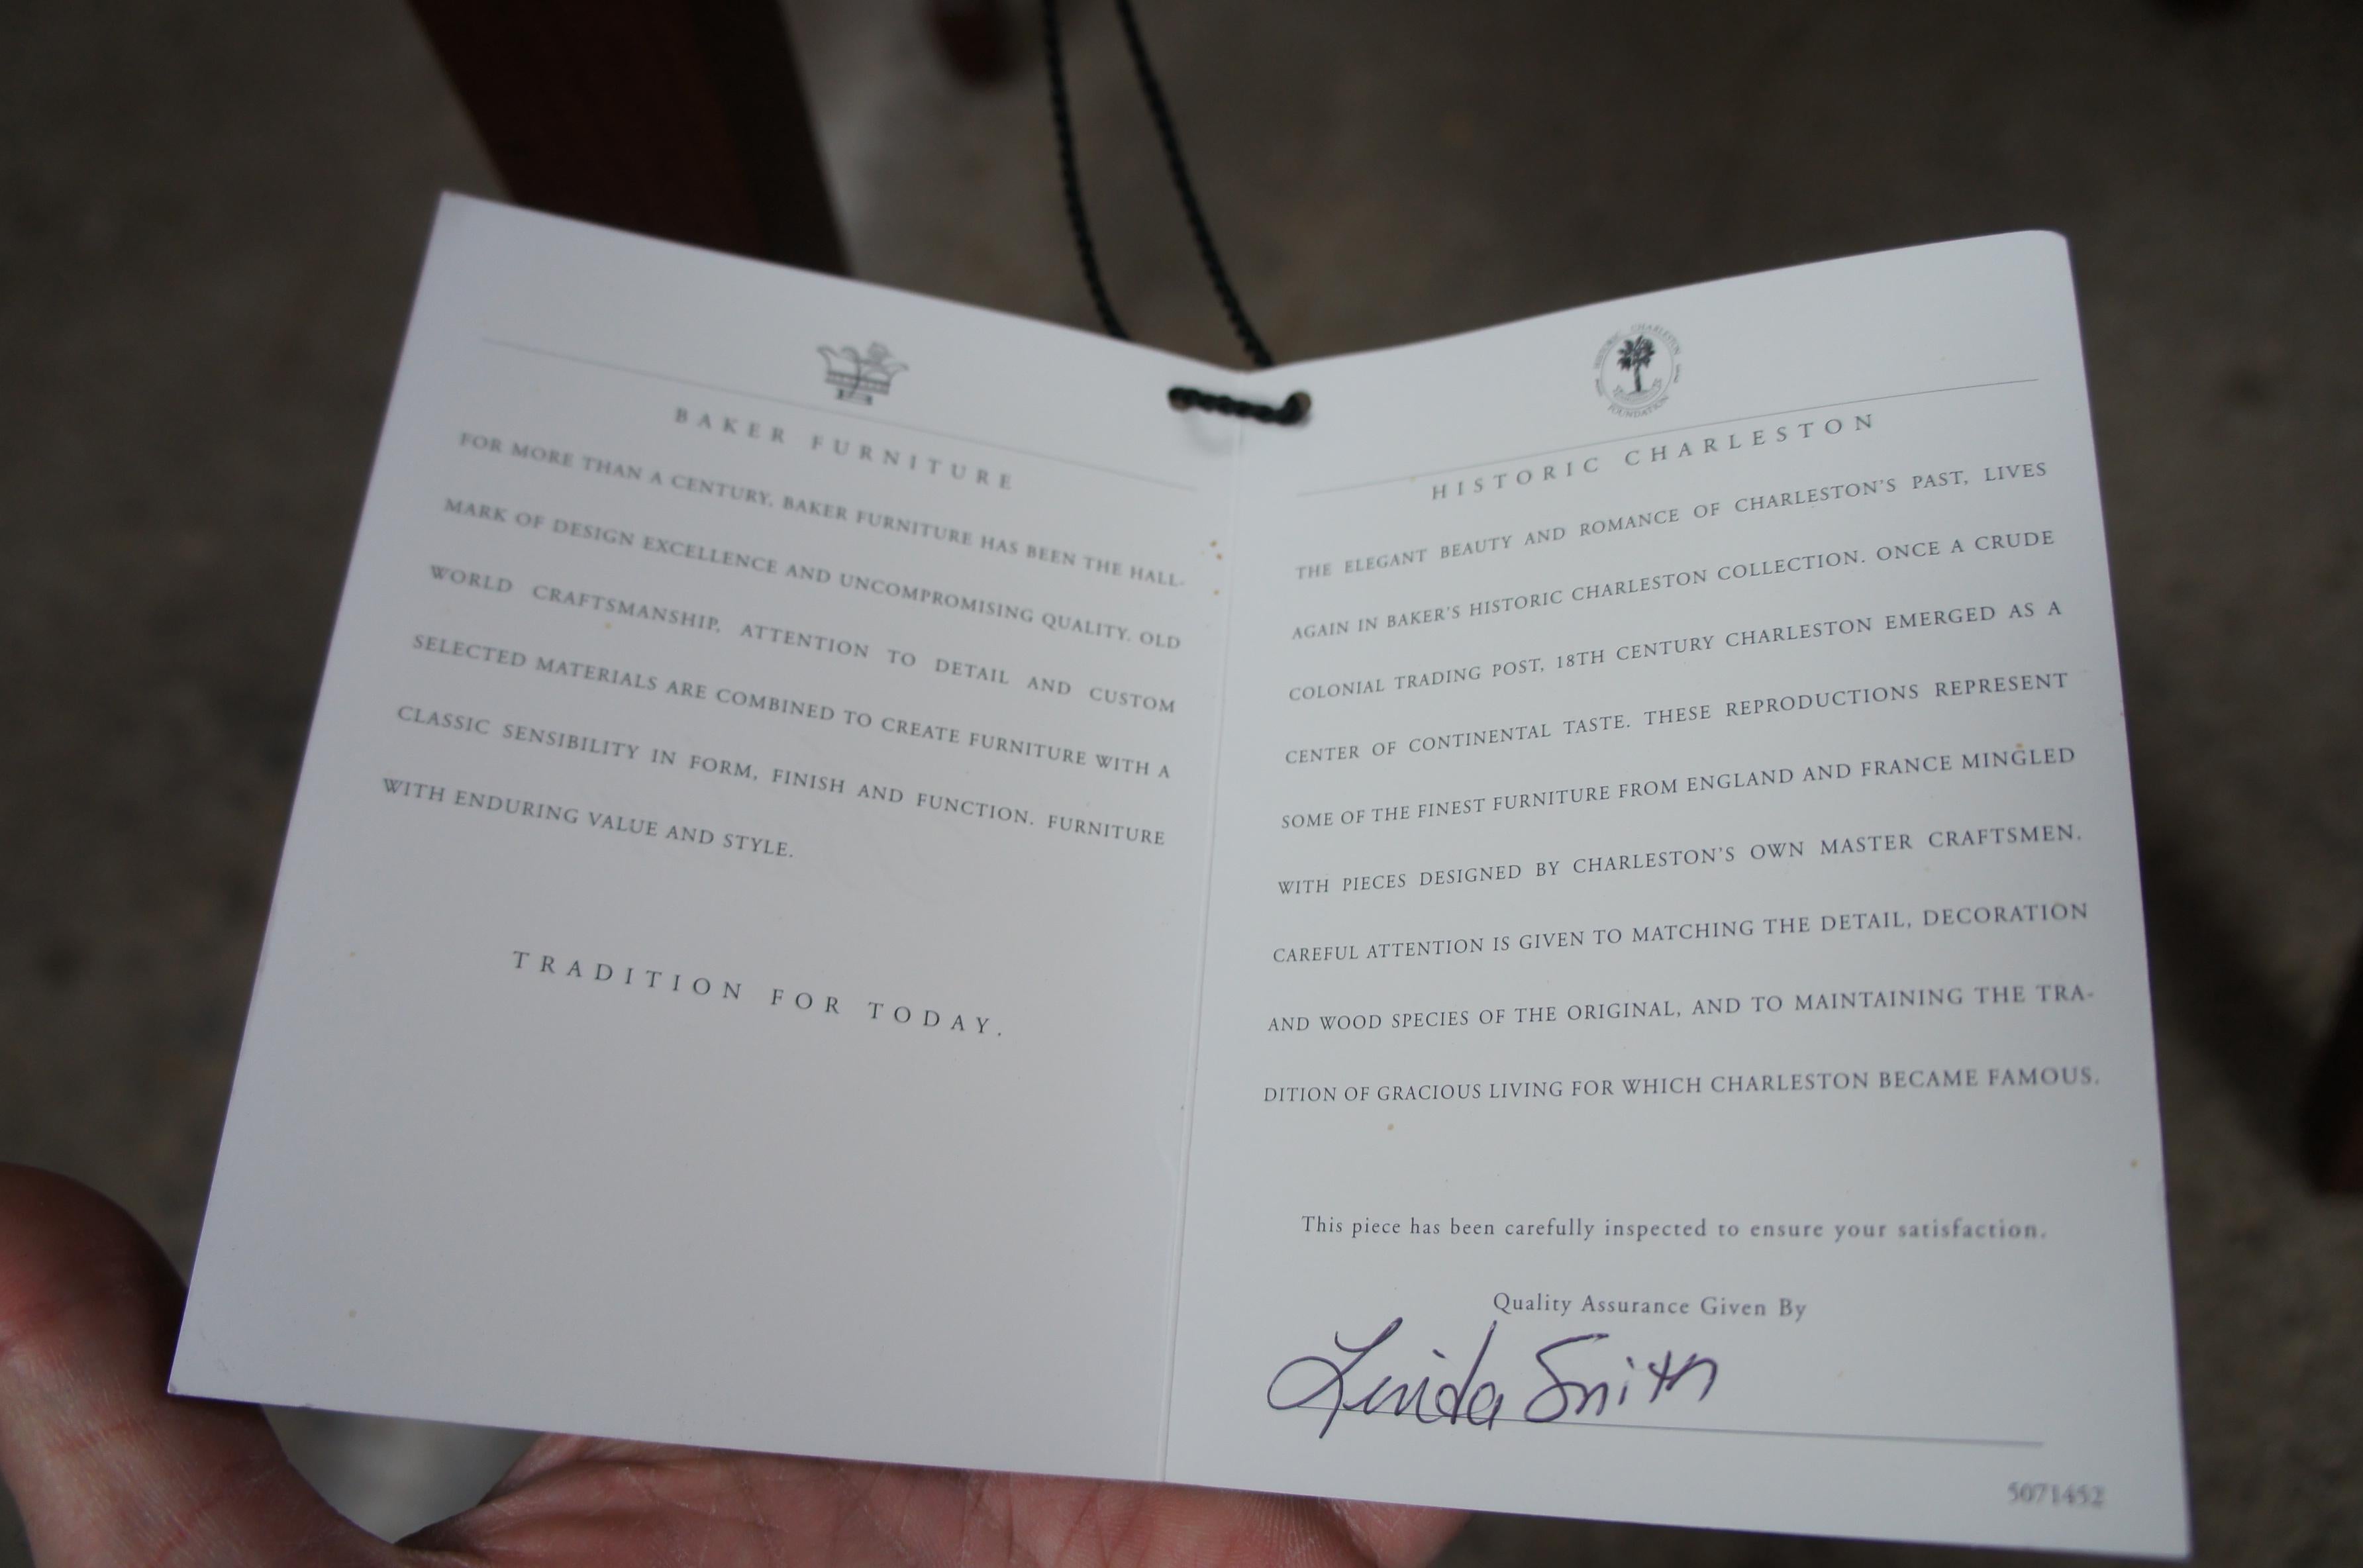 BAKER FURNITURE
FOR MORE THAN A CENTURY, BAKER FURNITURE HAS BEEN THE HALL-
MARK OF DESIGN EXCELLENCE AND UNCOMPROMISING QUALITY. OLD
WORLD CRAFTSMANSHIP, ATTENTION TO DETAIL AND CUSTOM
SELECTED MATERIALS ARE COMBINED TO CREATE FURNITURE WITH A
CLASSIC SENSIBILITY IN FORM, FINISH AND FUNCTION. FURNITURE
WITH ENDURING VALUE AND STYLE.
TRADITION FOR TODAY.
HISTORIC CHARLESTON
FOUNDATION
HISTORIC CHARLESTON
THE ELEGANT BEAUTY AND ROMANCE OF CHARLESTON'S PAST, LIVES
AGAIN IN BAKER'S HISTORIC CHARLESTON COLLECTION. ONCE A CRUDE
COLONIAL TRADING POST, 18TH CENTURY CHARLESTON EMERGED AS A
CENTER OF CONTINENTAL TASTE. THESE REPRODUCTIONS REPRESENT
SOME OF THE FINEST FURNITURE FROM ENGLAND AND FRANCE MINGLED
WITH PIECES DESIGNED BY CHARLESTON'S OWN MASTER CRAFTSMEN.
CAREFUL ATTENTION IS GIVEN TO MATCHING THE DETAIL, DECORATION
AND WOOD SPECIES OF THE ORIGINAL, AND TO MAINTAINING THE TRA-
DITION OF GRACIOUS LIVING FOR WHICH CHARLESTON BECAME FAMOUS.
This piece has been carefully inspected to ensure your satisfaction.
Quality Assurance Given By
Linda Smith
5071452